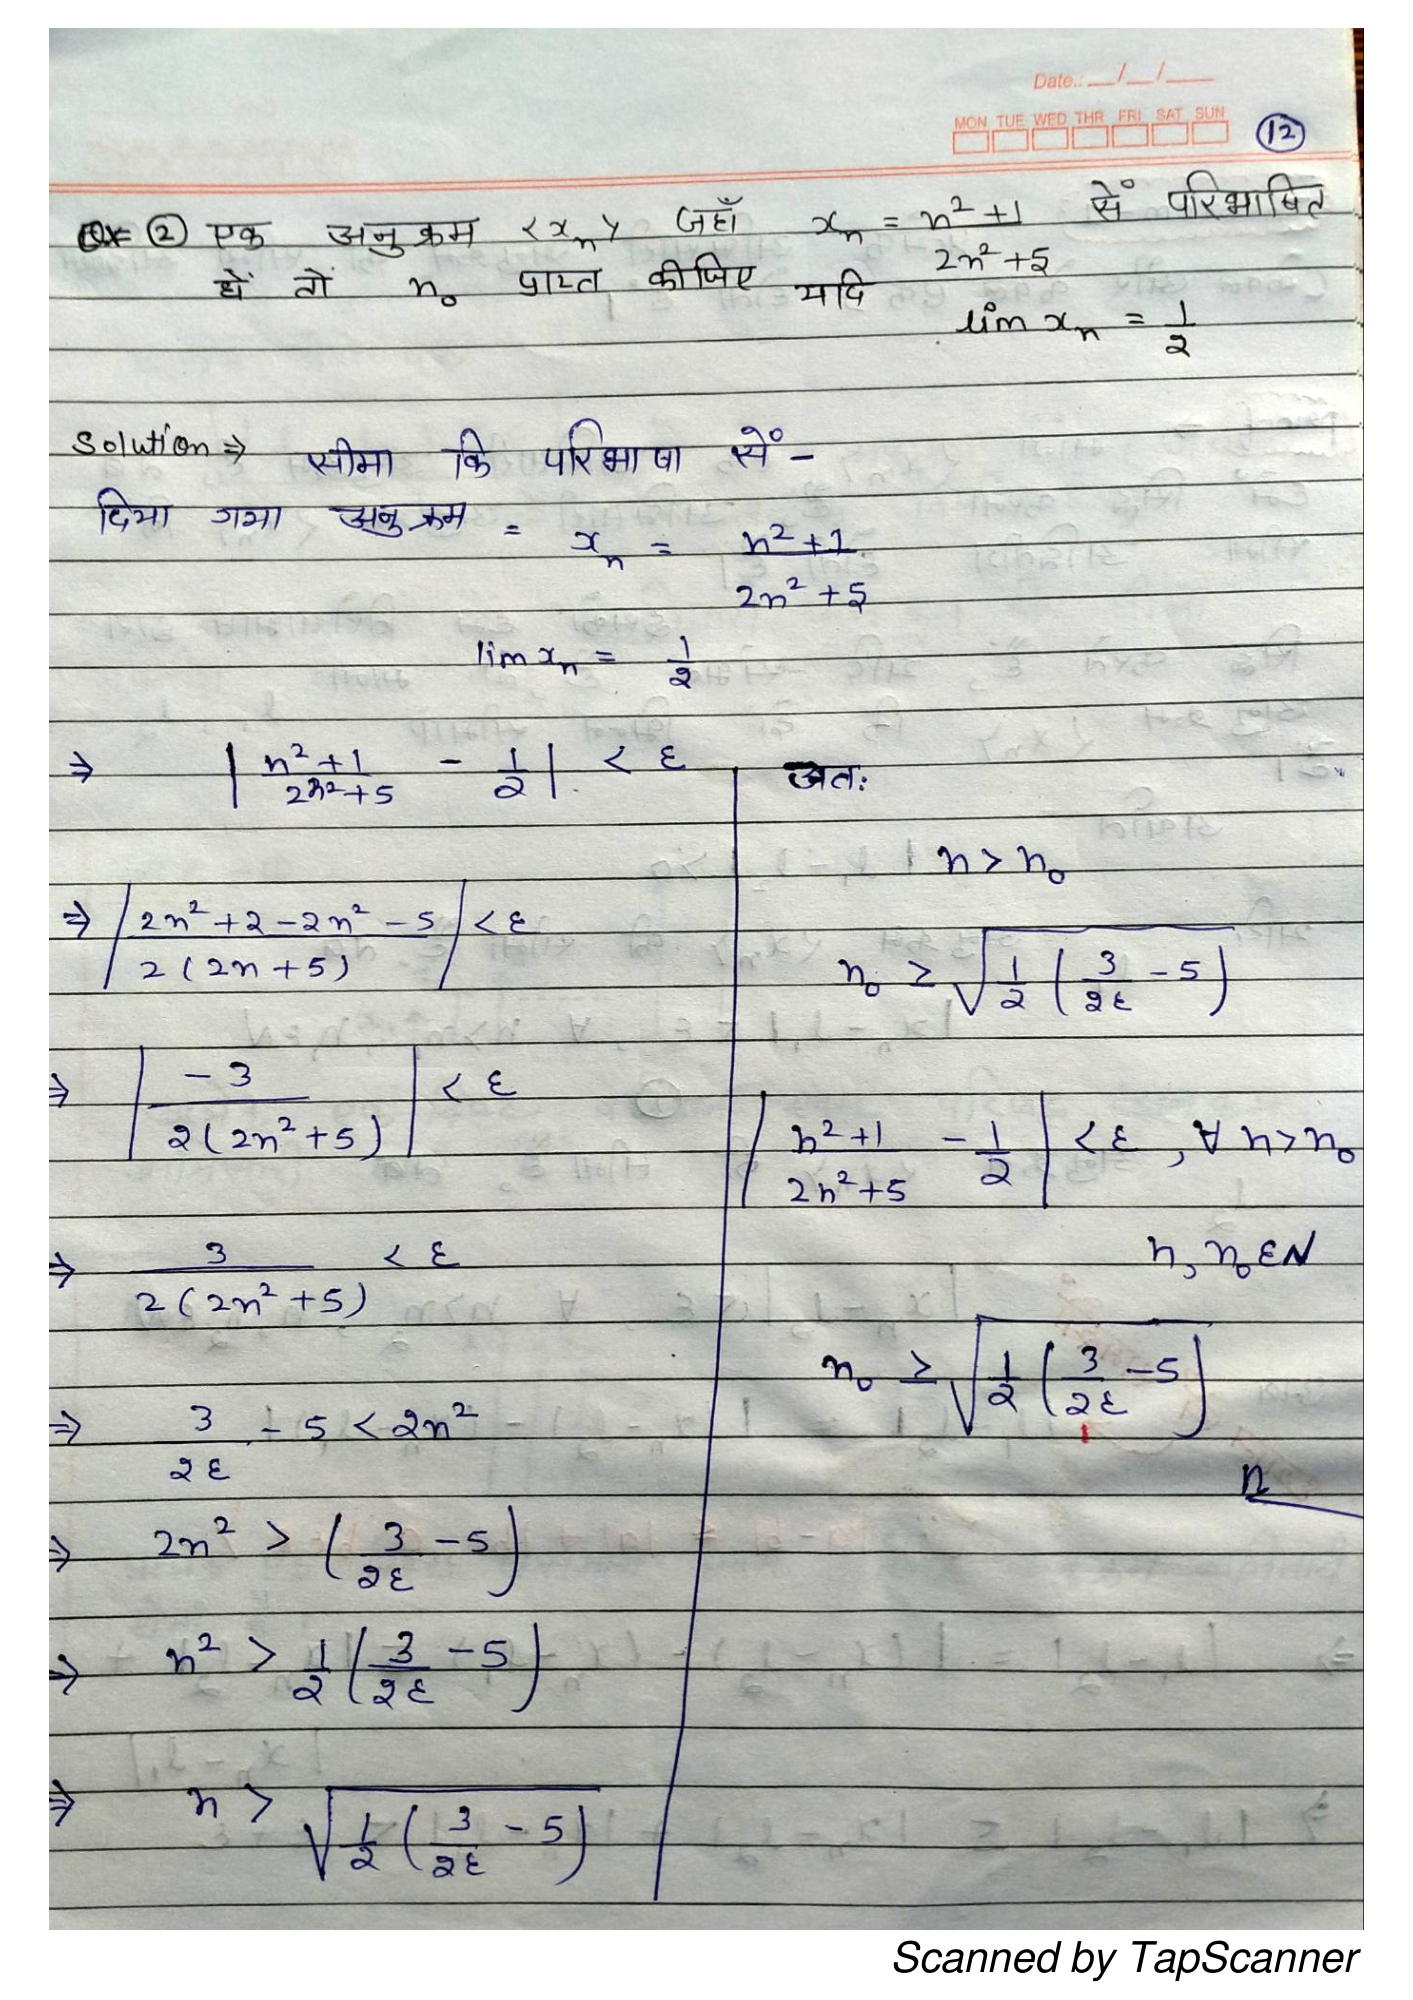 Date.: __/__/___
MON TUE WED THR FRI SAT SUN
12
Ex ② एक अनुक्रम <xₙ> जहाँ xₙ = n²+1 / 2n²+5 सें परिभाषित
हों तों n₀ प्राप्त कीजिए यदि lim xₙ = 1/2
Solution ⇒ सीमा कि परिभाषा सें -
दिया गया अनुक्रम = xₙ = n²+1 / 2n²+5
lim xₙ = 1/2
⇒ | n²+1 / 2n²+5 - 1/2 | < ε
⇒ | 2n²+2-2n²-5 / 2(2n+5) | < ε
⇒ | -3 / 2(2n²+5) | < ε
⇒ 3 / 2(2n²+5) < ε
⇒ 3/2ε - 5 < 2n²
⇒ 2n² > (3/2ε - 5)
⇒ n² > 1/2 (3/2ε - 5)
⇒ n > √(1/2 (3/2ε - 5))
अतः
n > n₀
n₀ ≥ √(1/2 (3/2ε - 5))
| n²+1 / 2n²+5 - 1/2 | < ε, ∀ n > n₀
n, n₀ ε N
n₀ ≥ √(1/2 (3/2ε - 5))
Scanned by TapScanner